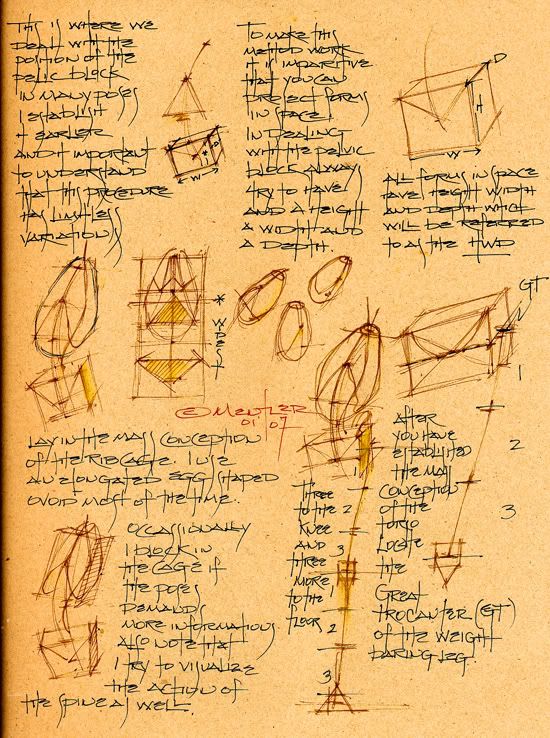 THIS IS WHERE WE
DEAL WITH THE
POSITION OF THE
PELVIC BLOCK
IN MANY POSES
I ESTABLISH
IT EARLIER
AND IT IMPORTANT
TO UNDERSTAND
THAT THIS PROCEDURE
HAS LIMITLESS
VARIATIONS
W
H
D
TO MAKE THIS
METHOD WORK
IT IS IMPARITIVE
THAT YOU CAN
PROJECT FORMS
IN SPACE.
IN DEALING
WITH THE PELVIC
BLOCK ALWAYS
TRY TO HAVE
AND A HEIGHT
A WIDTH AND
A DEPTH.
D
H
W
ALL FORMS IN SPACE
HAVE HEIGHT WIDTH
AND DEPTH WHICH
WILL BE REFERRED
TO AS THE HWD
* WIDEST
© MENTLER
01 07
LAY IN THE MASS CONCEPTION
OF THE RIBCAGE. I USE
AN ELONGATED EGG SHAPED
OVOID MOST OF THE TIME.
OCCASSIONALLY
I BLOCK IN
THE CAGE IF
THE POSES
DEMANDS
MORE INFORMATION.
ALSO NOTE THAT
I TRY TO VISUALIZE
THE ACTION OF
THE SPINE AS WELL.
THREE
TO THE
KNEE
AND
THREE
MORE
TO THE
FLOOR
1
2
3
1
2
3
AFTER
YOU HAVE
ESTABLISHED
THE MASS
CONCEPTION
OF THE
TORSO
LOCATE
THE
GREAT
TROCANTER (GT)
OF THE WEIGHT
BARING LEG.
GT
1
2
3